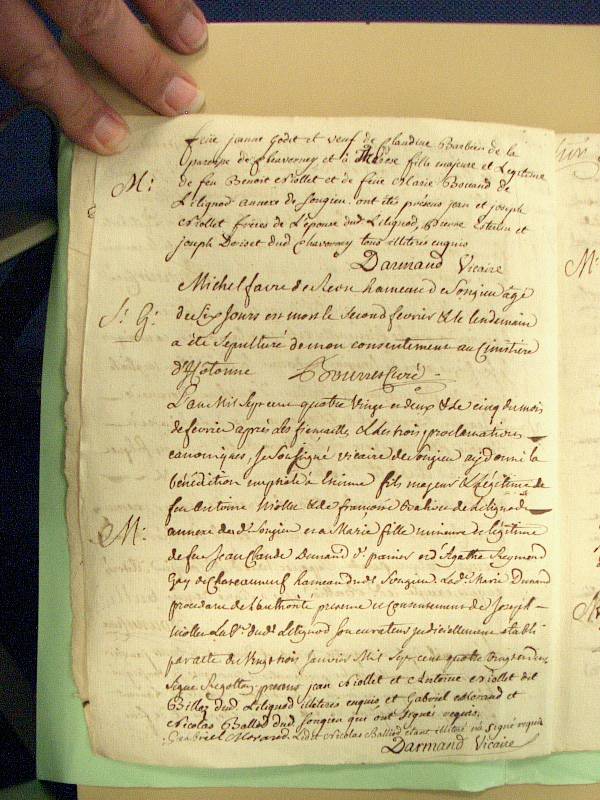 feüe jeanne Godet et veuf de Claudine Barbier de la
paroisse de Chavornay et à Therese fille majeure et Legitime
M:
de feu Benoit Niollet et de feüe Marie Bovand de
Litignod annexe de Songieu. ont étés présens jean et joseph
Niollet freres de L'epouse dud Litignod, Pierre et
joseph Doriset dud Chavornay tous illiteres enquis
Darmand Vicaire
Michel favre de hameau de Songieu agé
S: G:
de Six Jours est mort le Second fevrier & le lendemain
a été sepulturé de mon consentement au Cimitiere
d'Hotonne Curé
L'an Mil Sept cent quatre Vingt et deux & le cinq du mois
de fevrier après les fiencailles & les trois proclamations
canoniques, Je Soussigné vicaire de Songieu ay donné la
bénédiction nuptiale à Etienne fils majeur & Légitime de
feu Antoine Niollet & de françoise de Litignod
M:
annexe de dt Songieu et a Marie fille mineure & legitime
de feu Jean Claude Dunand et Agathe Reymond
Gay de Chateauneuf hameau dudt Songieu Lade Marie Dunand
procedant de l'authorité presence et Consentement de Joseph
Niollet dudt Litignod son curateur judiciellement etabli
par acte du Vingt trois Janvier Mil Sept cent quatre Vingt et deux
Signé présens jean Niollet et Antoine Niollet dit
Billaz dud Litignod illiteres enquis et Gabriel Morand et
Nicolas Ballod dud Songieu qui ont Signés requis,
Gabriel Morand. Ledit Nicolas Balliod étant illitéré n'a signé requis
Darmand Vicaire